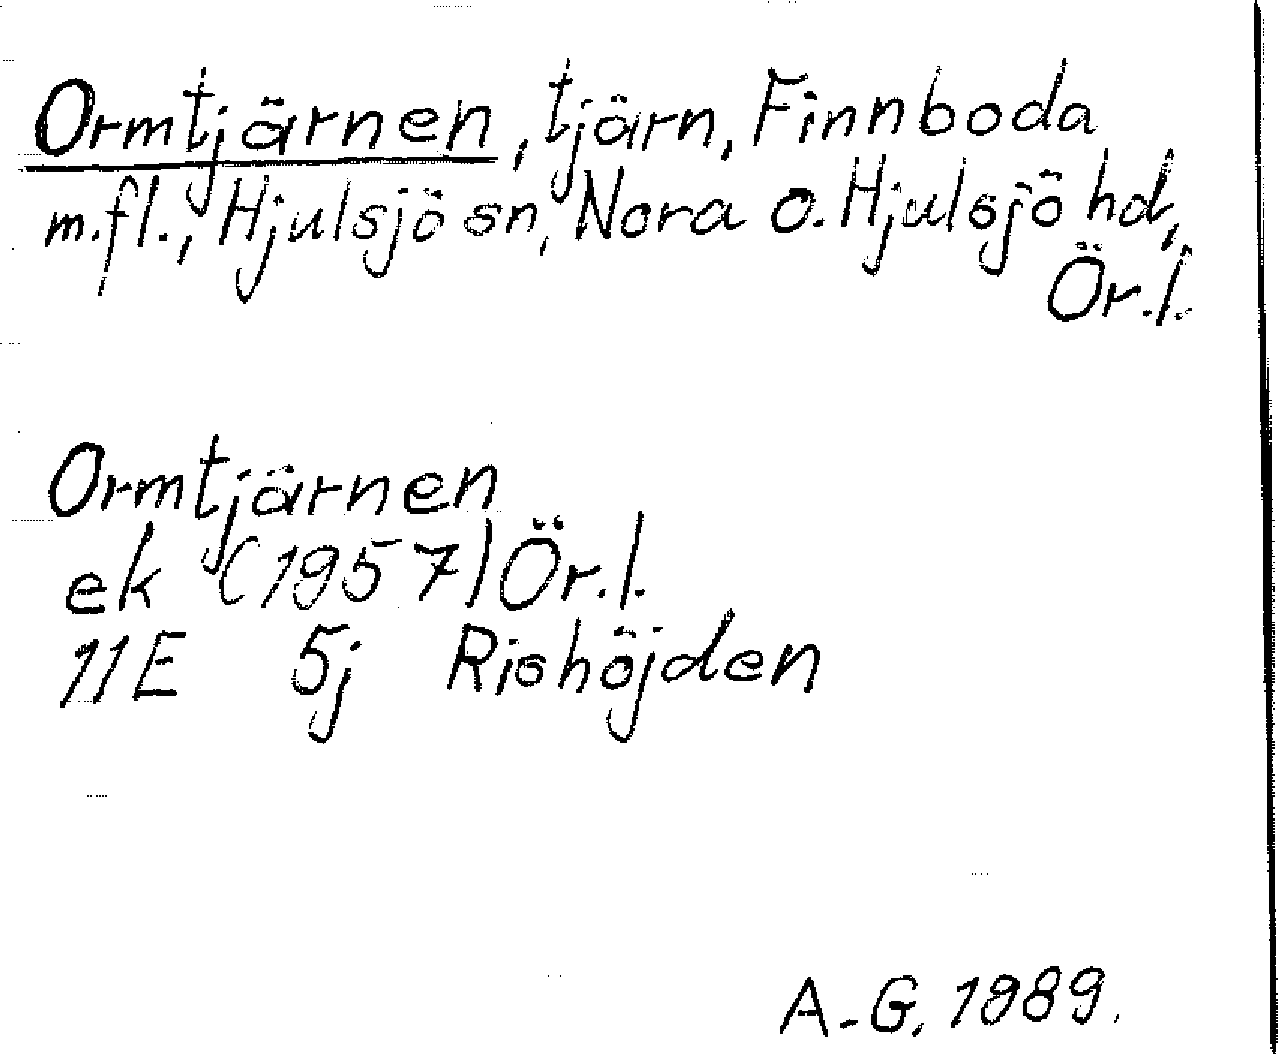 Ormtjärnen, tjärn, Finnboda
m.fl., Hjulsjö sn, Nora o. Hjulsjö hd,
Ör.l.
Ormtjärnen
ek (1957) Ör.l.
11E 5j Rishöjden
A-G. 1989.